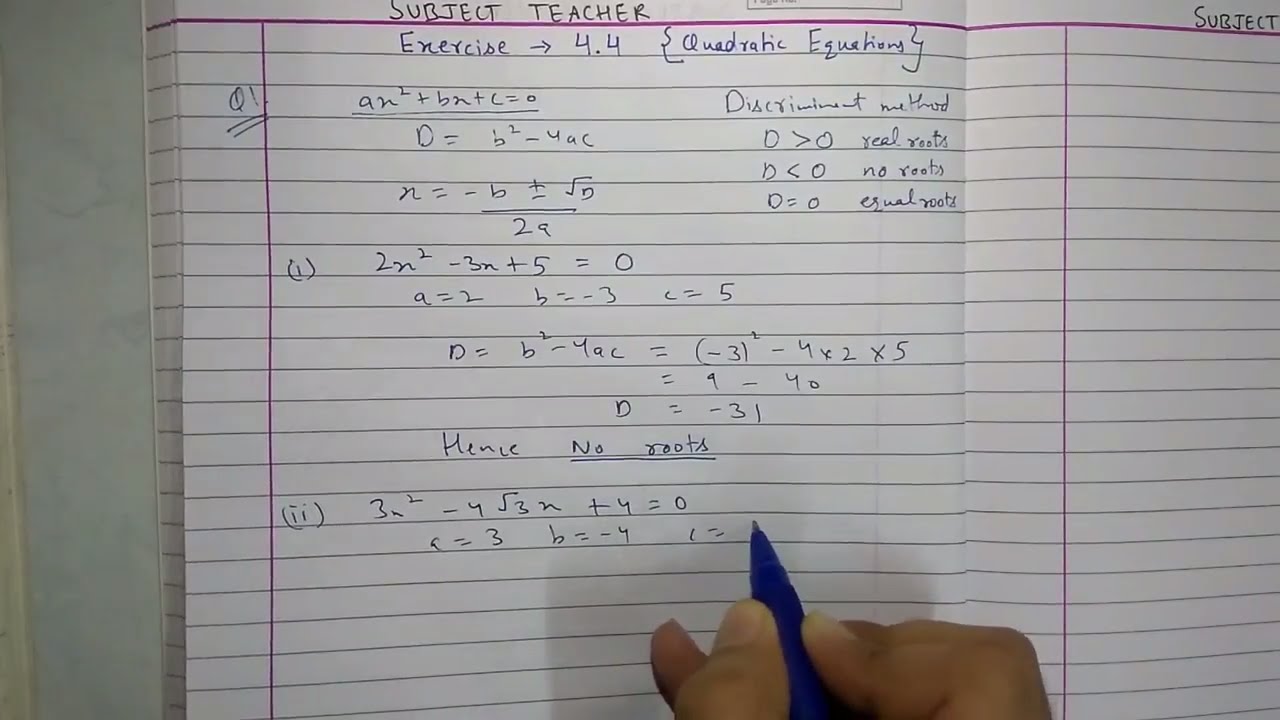 SUBJECT TEACHER
SUBJECT
Exercise → 4.4 {Quadratic Equations}
Q1
ax² + bx + c = 0
D = b² - 4ac
x = -b ± √D
2a
Discriminent method
D > 0 real roots
D < 0 no roots
D = 0 equal roots
(i) 2x² - 3x + 5 = 0
a = 2 b = -3 c = 5
D = b² - 4ac = (-3)² - 4 × 2 × 5
= 9 - 40
D = -31
Hence No roots
(ii) 3x² - 4√3x + 4 = 0
a = 3 b = -4 c =